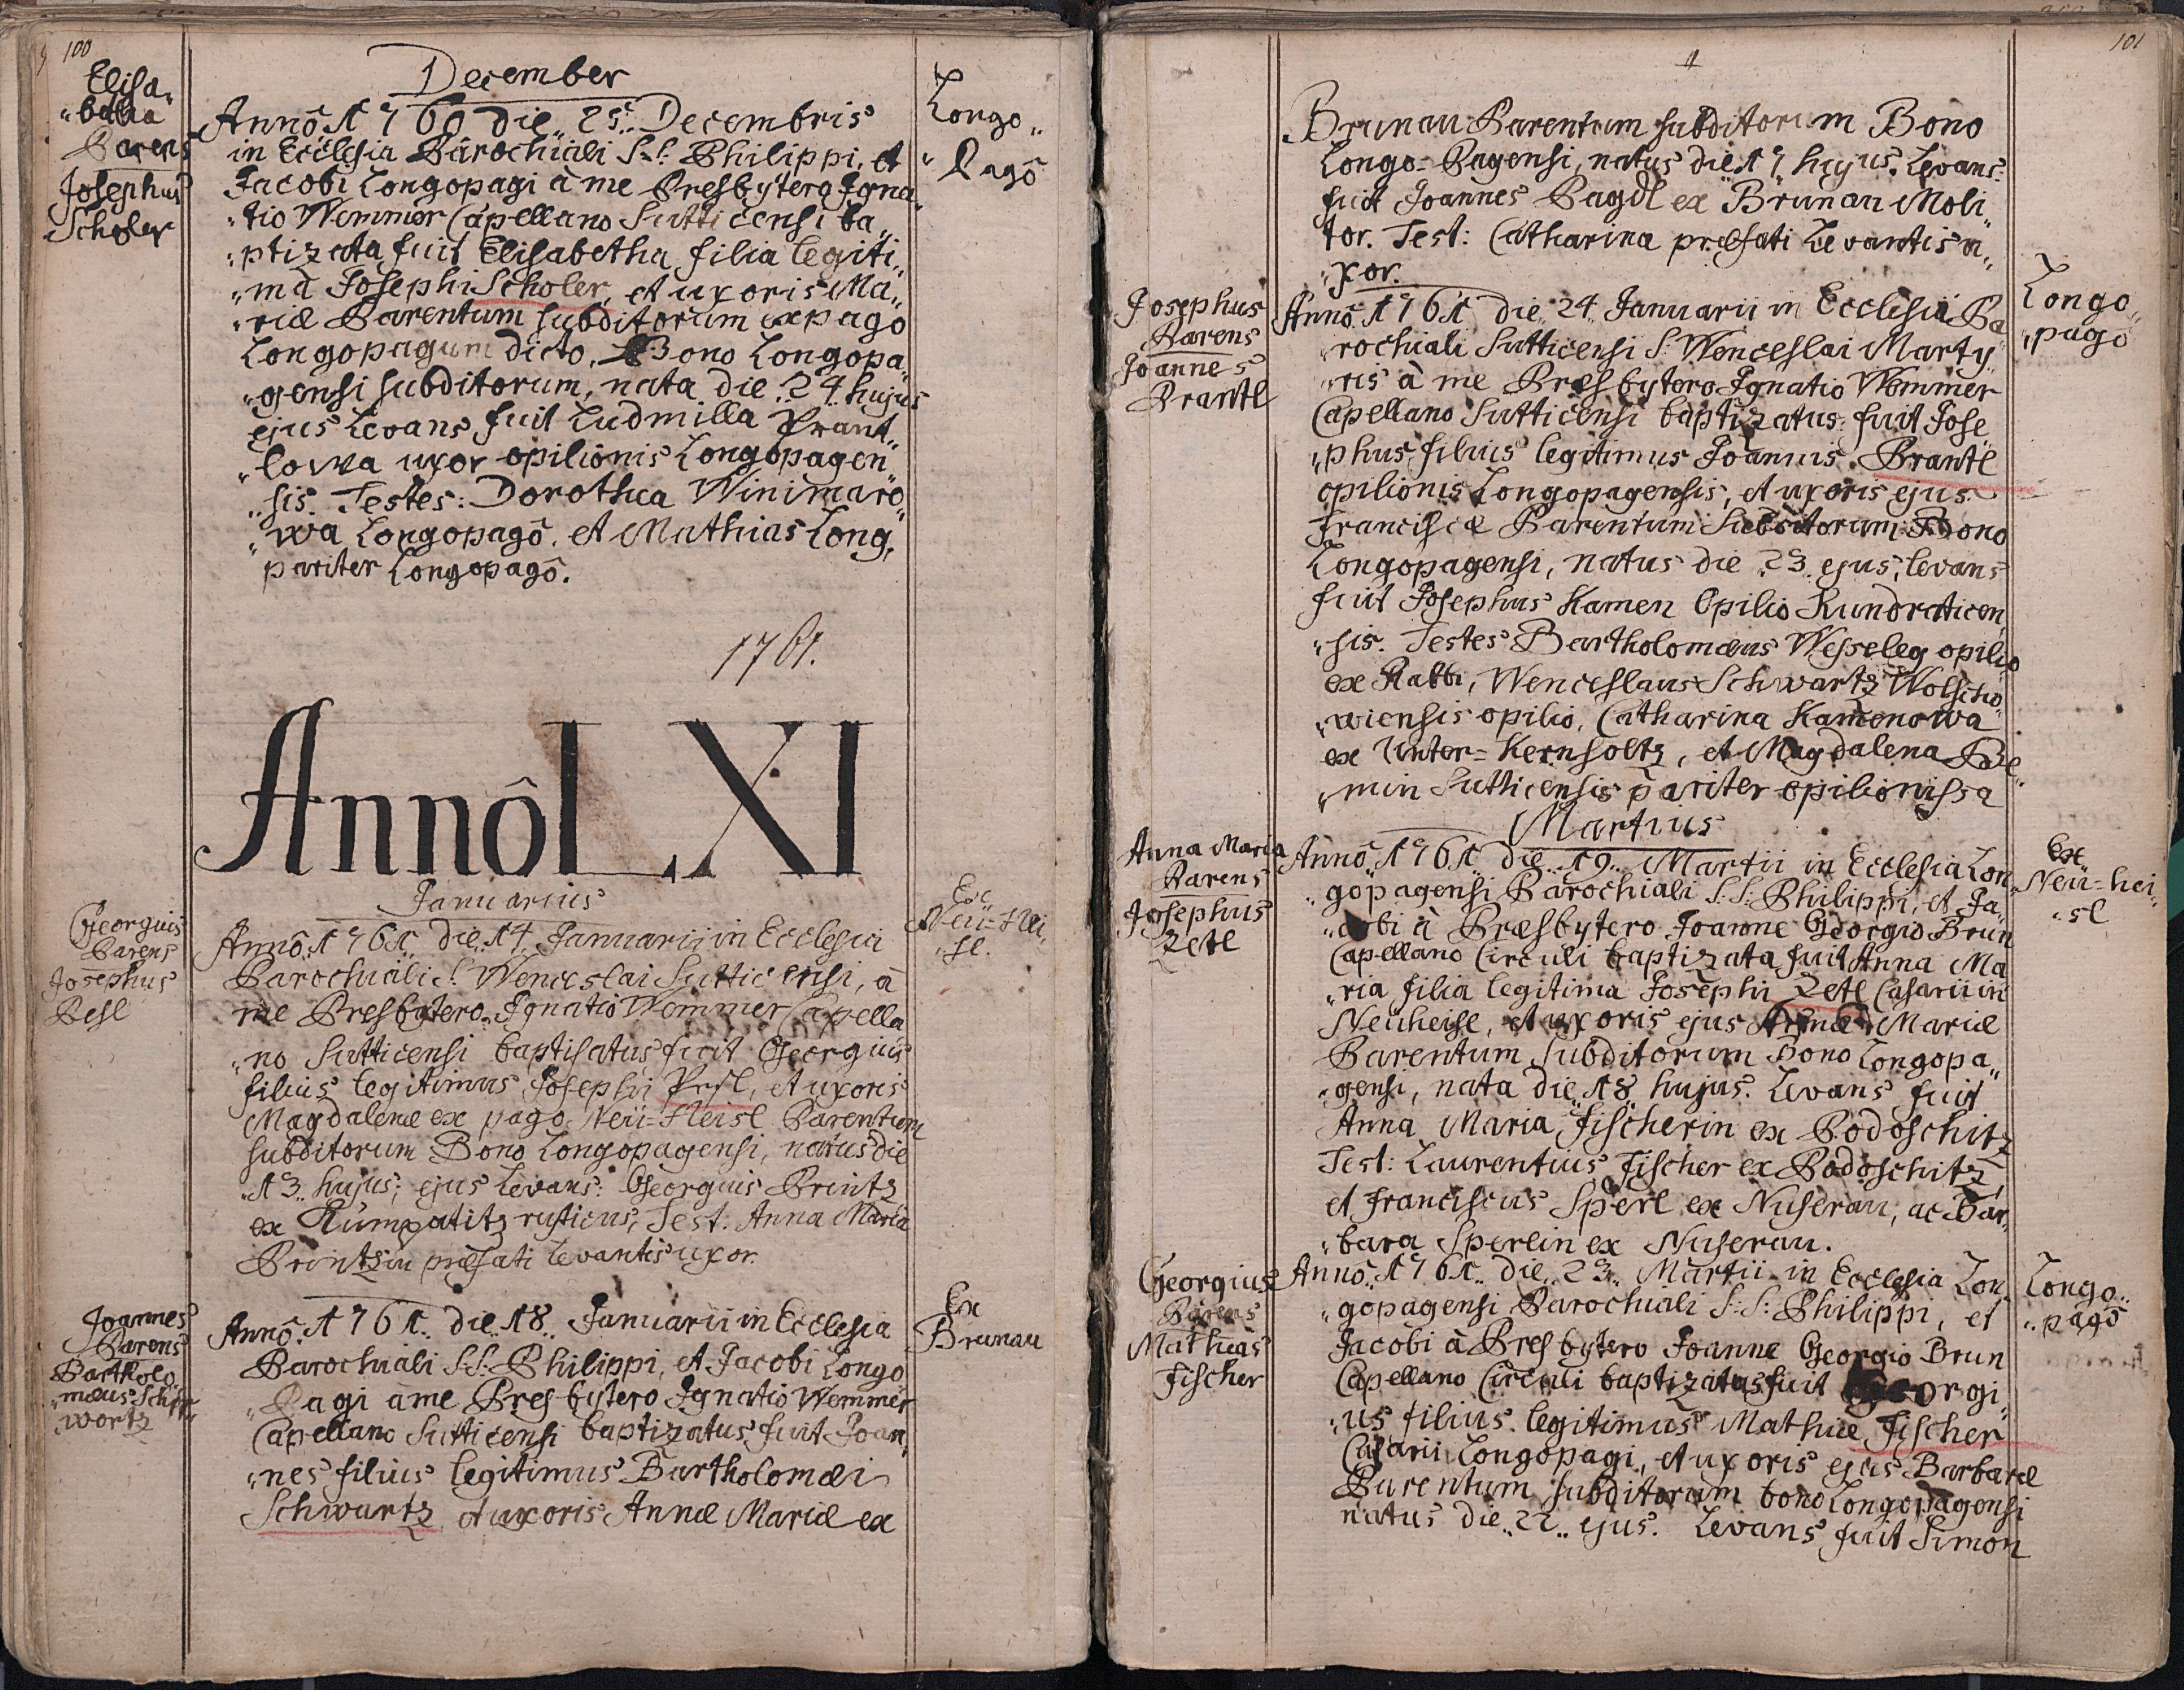 100
Elisa„
„betha
Parens
Josephus
Scholer
December
Annô 1760 die 25. Decembris
in Ecclesia Parochiali S.S. Philippi, et
Jacobi Longopagi à me Presbytero Igna„
„tio Wemmer Capellano Sutticensi ba„
„ptizata fuit Elisabetha filia legiti„
„ma Josephi Scholer, et uxoris Ma„
„riæ Parentum subditorum ex pago
Longopagum dicto. Bono Longopa„
„gensi subditorum, nata die 24. hujus
ejus Levans fuit Ludmilla Prant„
„lowa uxor opilionis Longopagen„
„sis. Testes: Dorothea Winimaro„
„wa Longopagô. et Mathias Long,
pariter Longopagô.
Longo„
„Pagô
1761.
Annô LXI
Januarius
Georgius
Parens
Josephus
Pesl
Annô 1761 die 14. Januarii in Ecclesia
Parochiali S. Wenceslai Sutticensi, à
me Presbytero Ignatio Wemmer Capella
„no Sutticensi baptisatus fuit Georgius
filius legitimus Josephi Pesl, et uxoris
Magdalenæ ex pago Neü=Heisl Parentum
subditorum Bono Longopagensi, natus die
13. hujus; ejus Levans: Georgius Printz
ex Kumpatitz rusticus, Test: Anna Maria
Printzin præfati Levantis uxor.
Ex
Neü=Hei„
„sl.
Joannes
Parens
Bartholo„
„mæus Sch„
„wartz
Annô 1761. die 18. Januarii in Ecclesia
Parochiali S.S. Philippi, et Jacobi Longo
„Pagi à me Presbytero Ignatio Wemmer
Capellano Sutticensi baptizatus fuit Joan„
„nes filius legitimus Bartholomæi
Schwartz, et uxoris Annæ Mariæ ex
Ex
Brunau
101
Brunau Parentum subditorum Bono
Longo=Pagensi, natus die 17 hujus. Levans:
fuit Joannes Pagdl ex Brunau Moli„
tor. Test: Catharina præfati Levantis u„
„xor.
Josephus
Parens
Joannes
Prantl
Annô 1761 die 24 Januarii in Ecclesia Pa
„rochiali Sutticensi S: Wenceslai Marty„
„ris à me Presbytero Ignatio Wemmer
Capellano Sutticensi baptizatus fuit Jose„
„phus filius legitimus Joannis Prantl
opilionis Longopagensis, et uxoris ejus
Franciscæ Parentum Subditorum Bono
Longopagensi, natus die 23 ejus, levans
fuit Josephus Kamen Opilio Kundraticen„
„sis. Testes Bartholomæus Wesseleg opilio
ex Rabbi, Wenceslaus Schwartz Wolscho„
„wiensis opilio, Catharina Kamenowa
ex Unter=Kernsoltz, et Magdalena Pöe„
„min Sutticensis pariter opilionissa
Longo„
„pagô
Martius
Anna Maria
Parens
Josephus
Zetl
Annô 1761 die 19. Martii in Ecclesia Lon„
„gopagensi Parochiali S.S: Philippi, et Ja„
„cobi à Presbytero Joanne Georgio Brun
Capellano Circuli baptizata fuit Anna Ma
„ria filia legitima Josephi Zetl Casarii in
Neüheisl, et uxoris ejus Annæ Mariæ
Parentum Subditorum Bono Longopa„
„gensi, nata die 18 hujus. Levans fuit
Anna Maria Fischerin ex Podoschitz
Test: Laurentius Fischer ex Podoschitz,
et Franciscus Sperl ex Nuserau, ac Bar„
„bara Sperlin ex Nuserau.
Ex
Neü=hei„
„sl
Georgius
Parens
Mathias
Fischer
Annô 1761. die 23. Martii in Ecclesia Lon„
„gopagensi Parochiali S.S: Philippi, et
Jacobi à Presbytero Joanne Georgio Brun
Capellano Circuli baptizatus fuit Georgi„
„us filius legitimus Mathiæ Fischer
Casarii Longopagi, et uxoris ejus Barbaræ
Parentum subditorum bono Longopagensi
natus die 22. ejus. Levans fuit Simon
Longo„
„pagô